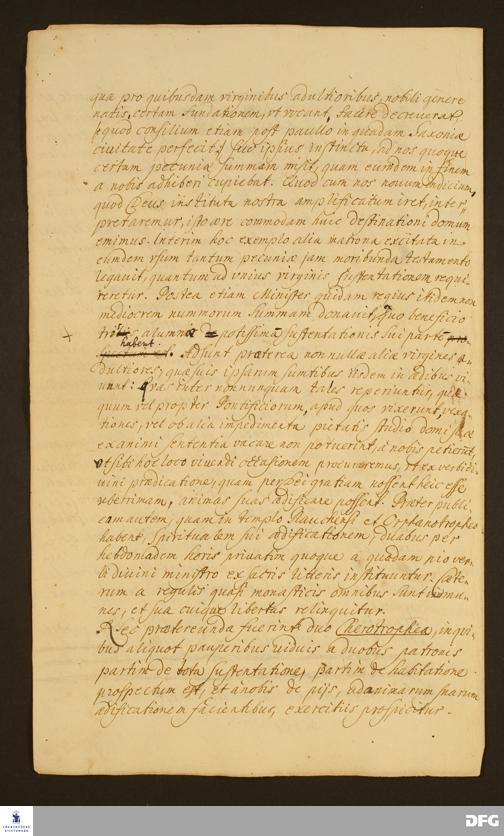 quæ pro quibusdam virginibus adultioribus, nobili genere
natis, certam fundationem, ut vocant, facere decreverat
(quod consilium etiam post paullo in quadam Saxoniæ
civitate perfecit) suo ipsius instinctu, ad nos quoque
certam pecuniæ summam misit, quam eumdem in finem
a nobis adhiberi cupiebat. Quod cum nos novum indicium,
quod Deus instituta nostra amplificatum iret, inter„
pretaremur, isto ære commodam huic destinationi domum
emimus. Interim hoc exemplo alia matrona excitata in
eundem usum tantum pecuniæ jam moribunda testamento
legavit, quantum ad unius virginis sustentationem requi„
reretur. Postea etiam Minister quidam regius itidem non
mediocrem nummorum summam donavit, quo beneficio
tres alumnæ potissimā sustentationis sui parte
habent. Adsunt præterea nonnullæ aliæ virgines a„
dultiores, quæ suis ipsarum sumtibus itidem in ædibus vi„
vunt: quas inter nonnunquam tales reperiuntur, quæ
quum vel propter Pontificiorum, apud quos vixerunt, vexa„
tiones, vel ob alia impedimenta pietatis studio domi suæ
ex animi sententia vacare non potuerint, a nobis petierunt,
ut sibi hoc loco vivendi occasionem procuraremus, ut ex verbi di„
vini prædicatione, quam per Dei gratiam nossent heic esse
uberrimam, animas suas ædificare possent. Præter publi„
cam autem, quam in templo Glauchensi et Orphanotropheo
habent, spiritualem sui ædificationem, duabus per
hebdomadem horis privatim quoque a quodam pio ver„
bi divini ministro ex sacris literis instituuntur. Cæte„
rum a regulis quasi monasticis omnibus sunt immu„
nes, et sua cuique libertas relinquitur.
Nec prætereunda fuerint duo Cherotrophea, in qui„
bus aliquot pauperibus viduis a duobus patronis
partim de tota sustentatione, partim de habitatione
prospectum est, et a nobis de piis, ad animarum suarum
ædificationem facientibus, exercitiis prospicitur.
FRANCKESCHE
STIFTUNGEN
DFG